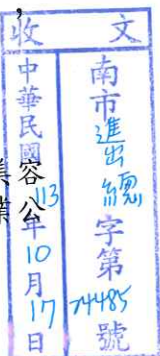 收文
南市進出總字第74485號
中華民國113年10月17日
容公